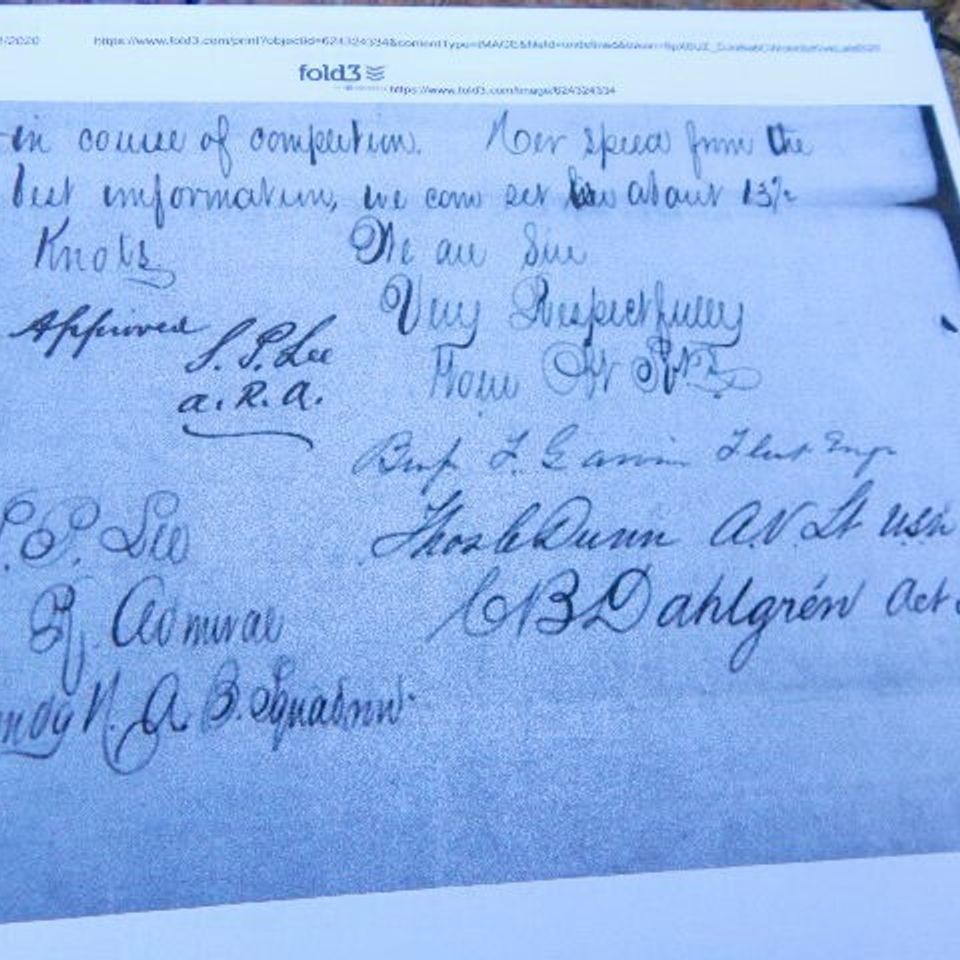 /2020 https://www.fold3.com/print?objectId=624324334&contentType=IMAGE&
fold3
https://www.fold3.com/image/624324334
in course of completion. Her speed from the
best information, we can get is about 13½
Knots
We are Sir
Very Respectfully
Your Obt
Approved
S. P. Lee
a. R. a.
Benj F. Garvin Fleet Engr
Thos C Dunn A.V. Lt USN
CB Dahlgren Act
S. P. Lee
Admiral
N. A. B. Squadron